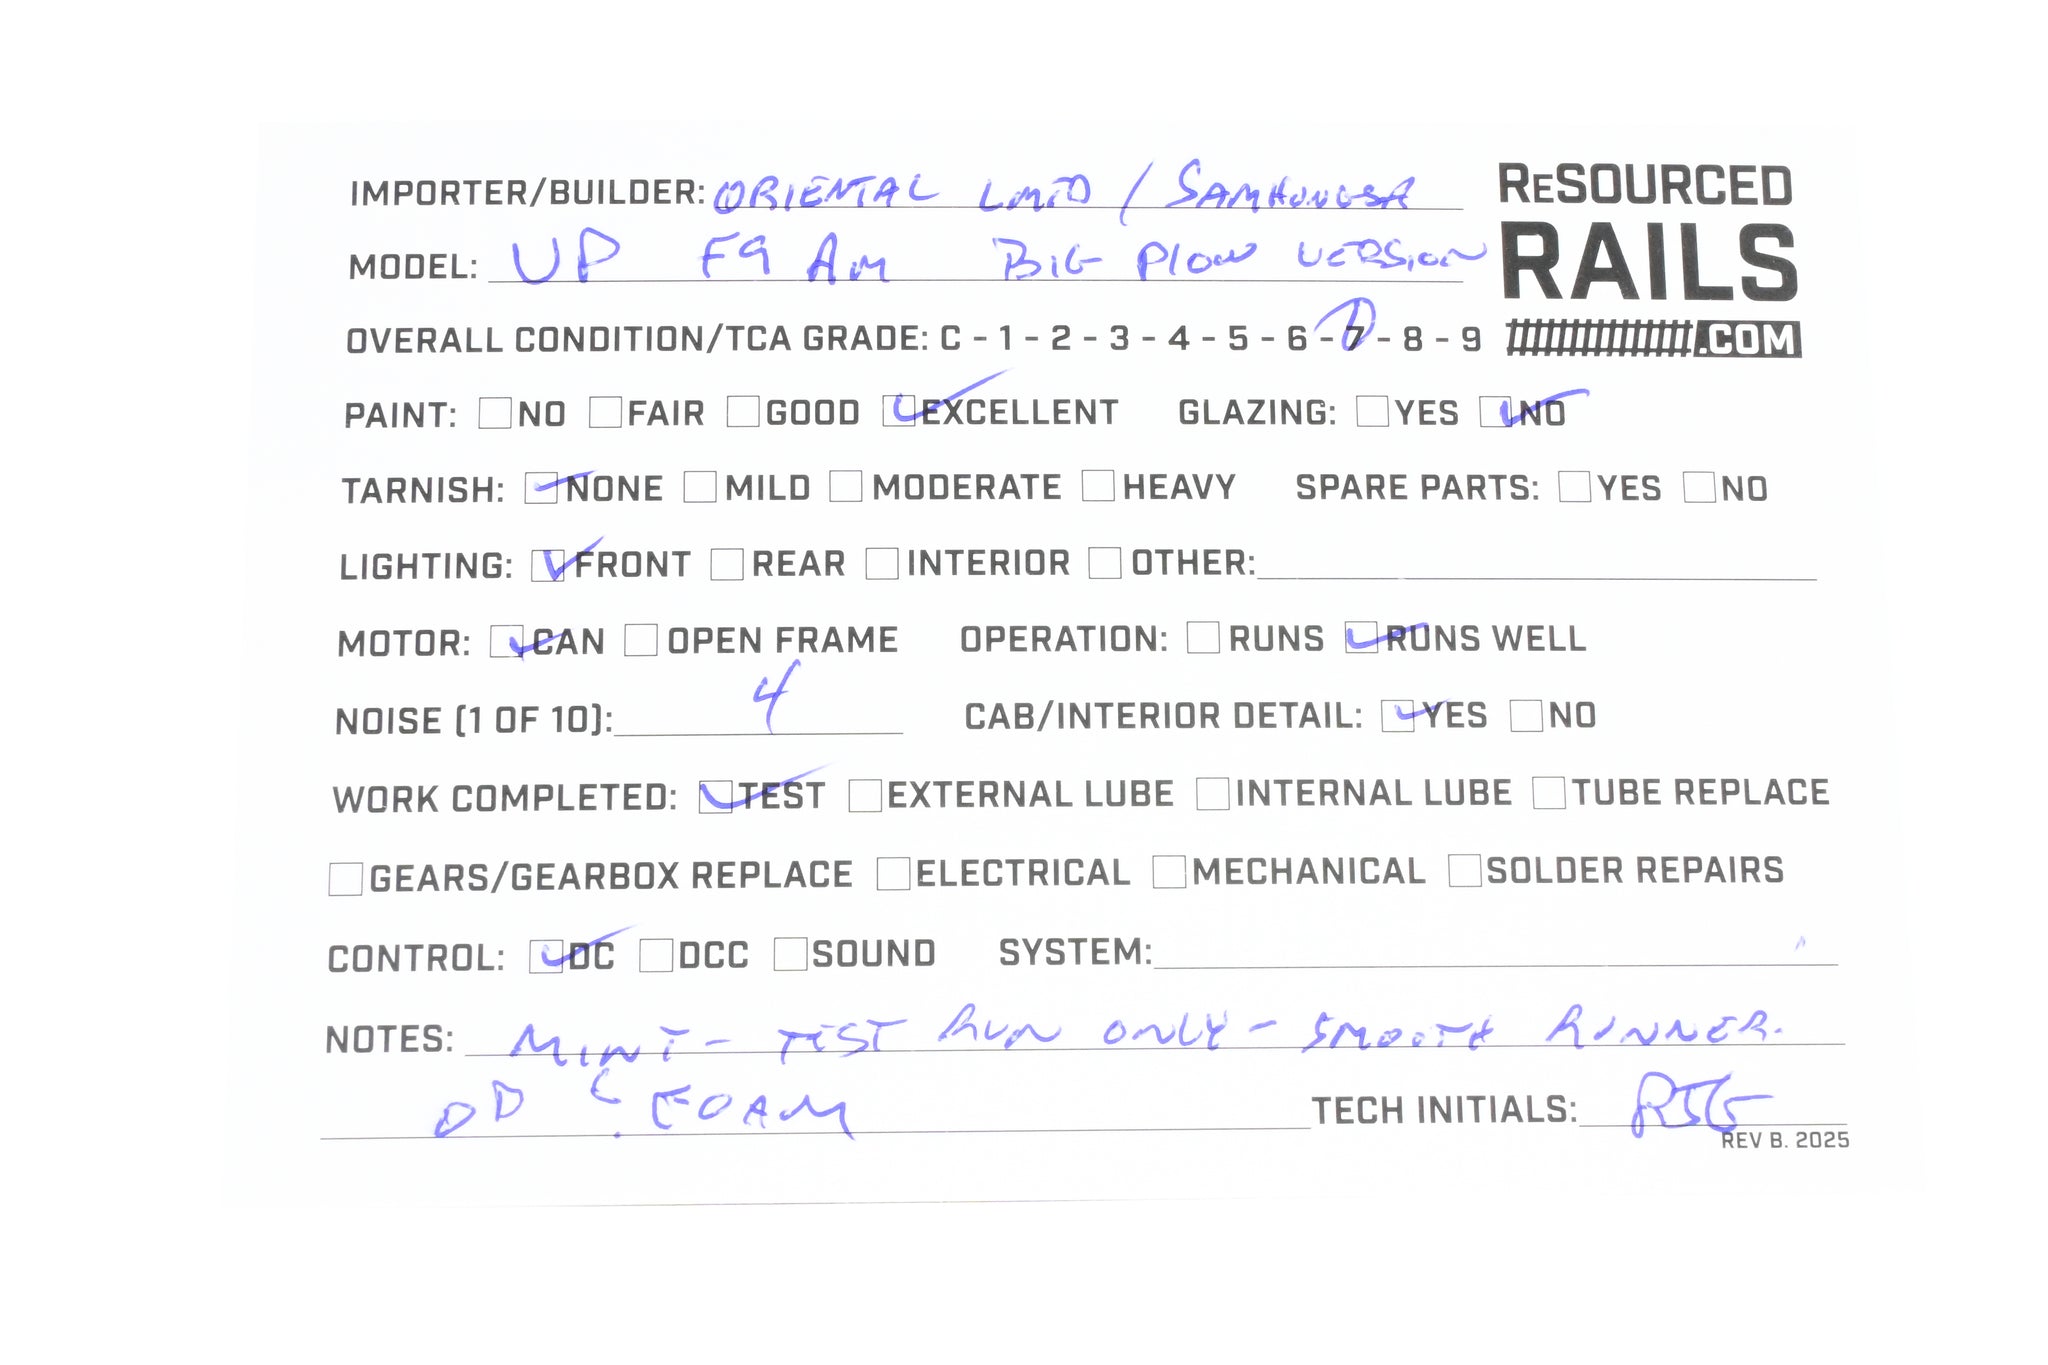 IMPORTER/BUILDER: ORIENTAL LMTD / SAMHONGSA
RESOURCED
RAILS
.COM
MODEL: UP F9 AM BIG PLOW VERSION
OVERALL CONDITION/TCA GRADE: C - 1 - 2 - 3 - 4 - 5 - 6 - 7 - 8 - 9
PAINT: NO FAIR GOOD EXCELLENT GLAZING: YES NO
TARNISH: NONE MILD MODERATE HEAVY SPARE PARTS: YES NO
LIGHTING: FRONT REAR INTERIOR OTHER:
MOTOR: CAN OPEN FRAME OPERATION: RUNS RUNS WELL
NOISE (1 OF 10): 4 CAB/INTERIOR DETAIL: YES NO
WORK COMPLETED: TEST EXTERNAL LUBE INTERNAL LUBE TUBE REPLACE
GEARS/GEARBOX REPLACE ELECTRICAL MECHANICAL SOLDER REPAIRS
CONTROL: DC DCC SOUND SYSTEM:
NOTES: MINT - TEST RUN ONLY - SMOOTH RUNNER.
FOAM TECH INITIALS:
REV B. 2025